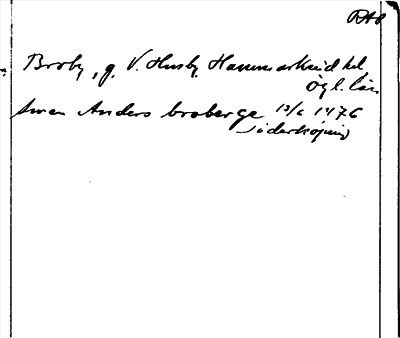 RAp
Broby, g. V. Husby, Hammarkind hd
Ögl. län
Swen Anders broberge 13/6 1476
Söderköping